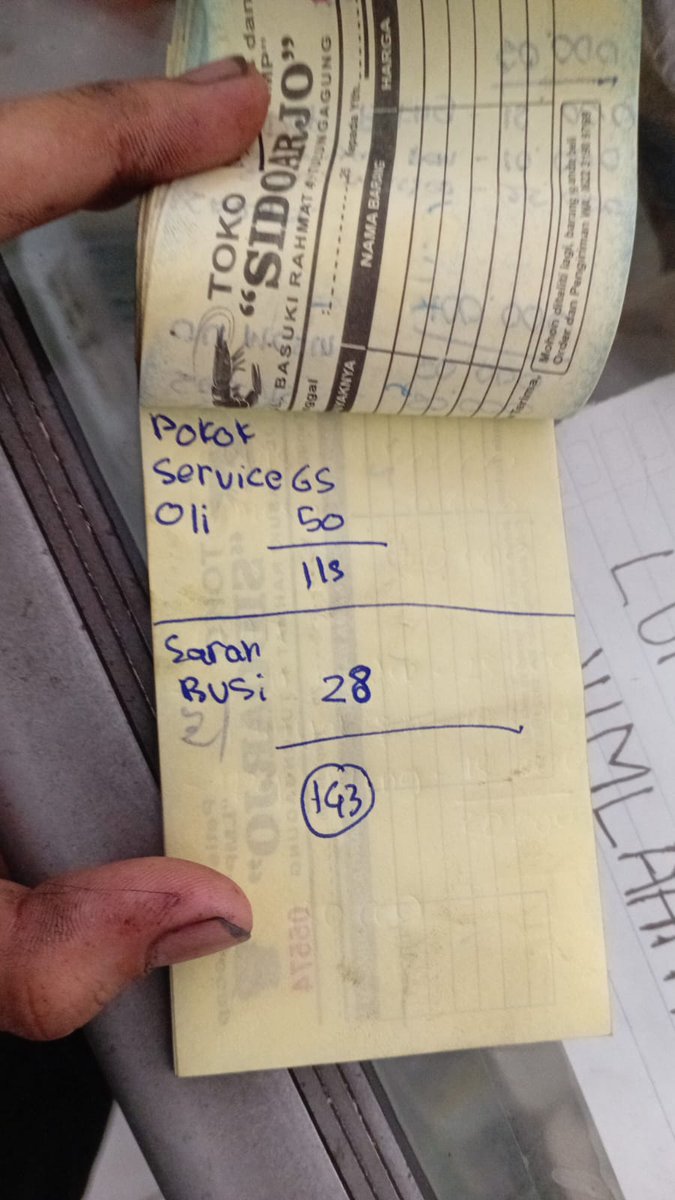 TOKO
dan
"SIDOARJO"
BASUKI RAHMAT
TULUNGAGUNG
Kepada Yth.
NAMA BARANG
HARGA
Mohon diteliti lagi, barang
Order dan Pengiriman
Pokok
Service 65
Oli 50
115
Saran
BUSi 28
143
05574